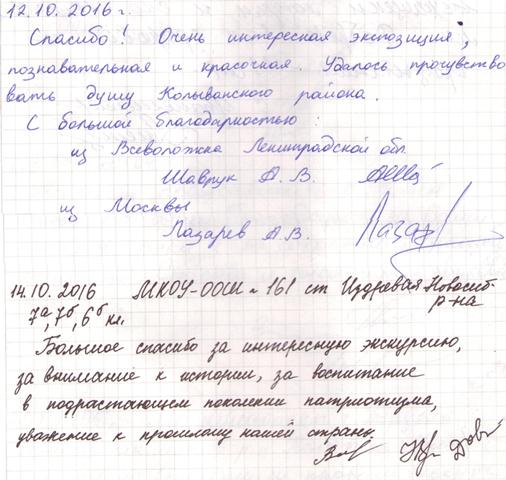 12.10.2016 г.
Спасибо! Очень интересная экспозиция,
познавательная и красочная. Удалось прочувство
вать душу Колыванского района.
С большой благодарностью:
из Всеволожска Ленинградской обл.
Шаврук А.В.
из Москвы
Лазарев А.В. Лазар
14.10.2016 МКОУ-ООШ №161 ст Издревая Новосиб-
р-на
7а, 7б, 6б кл.
Большое спасибо за интересную экскурсию,
за внимание к истории, за воспитание
в подрастающем поколении патриотизма,
уважение к прошлому нашей страны.